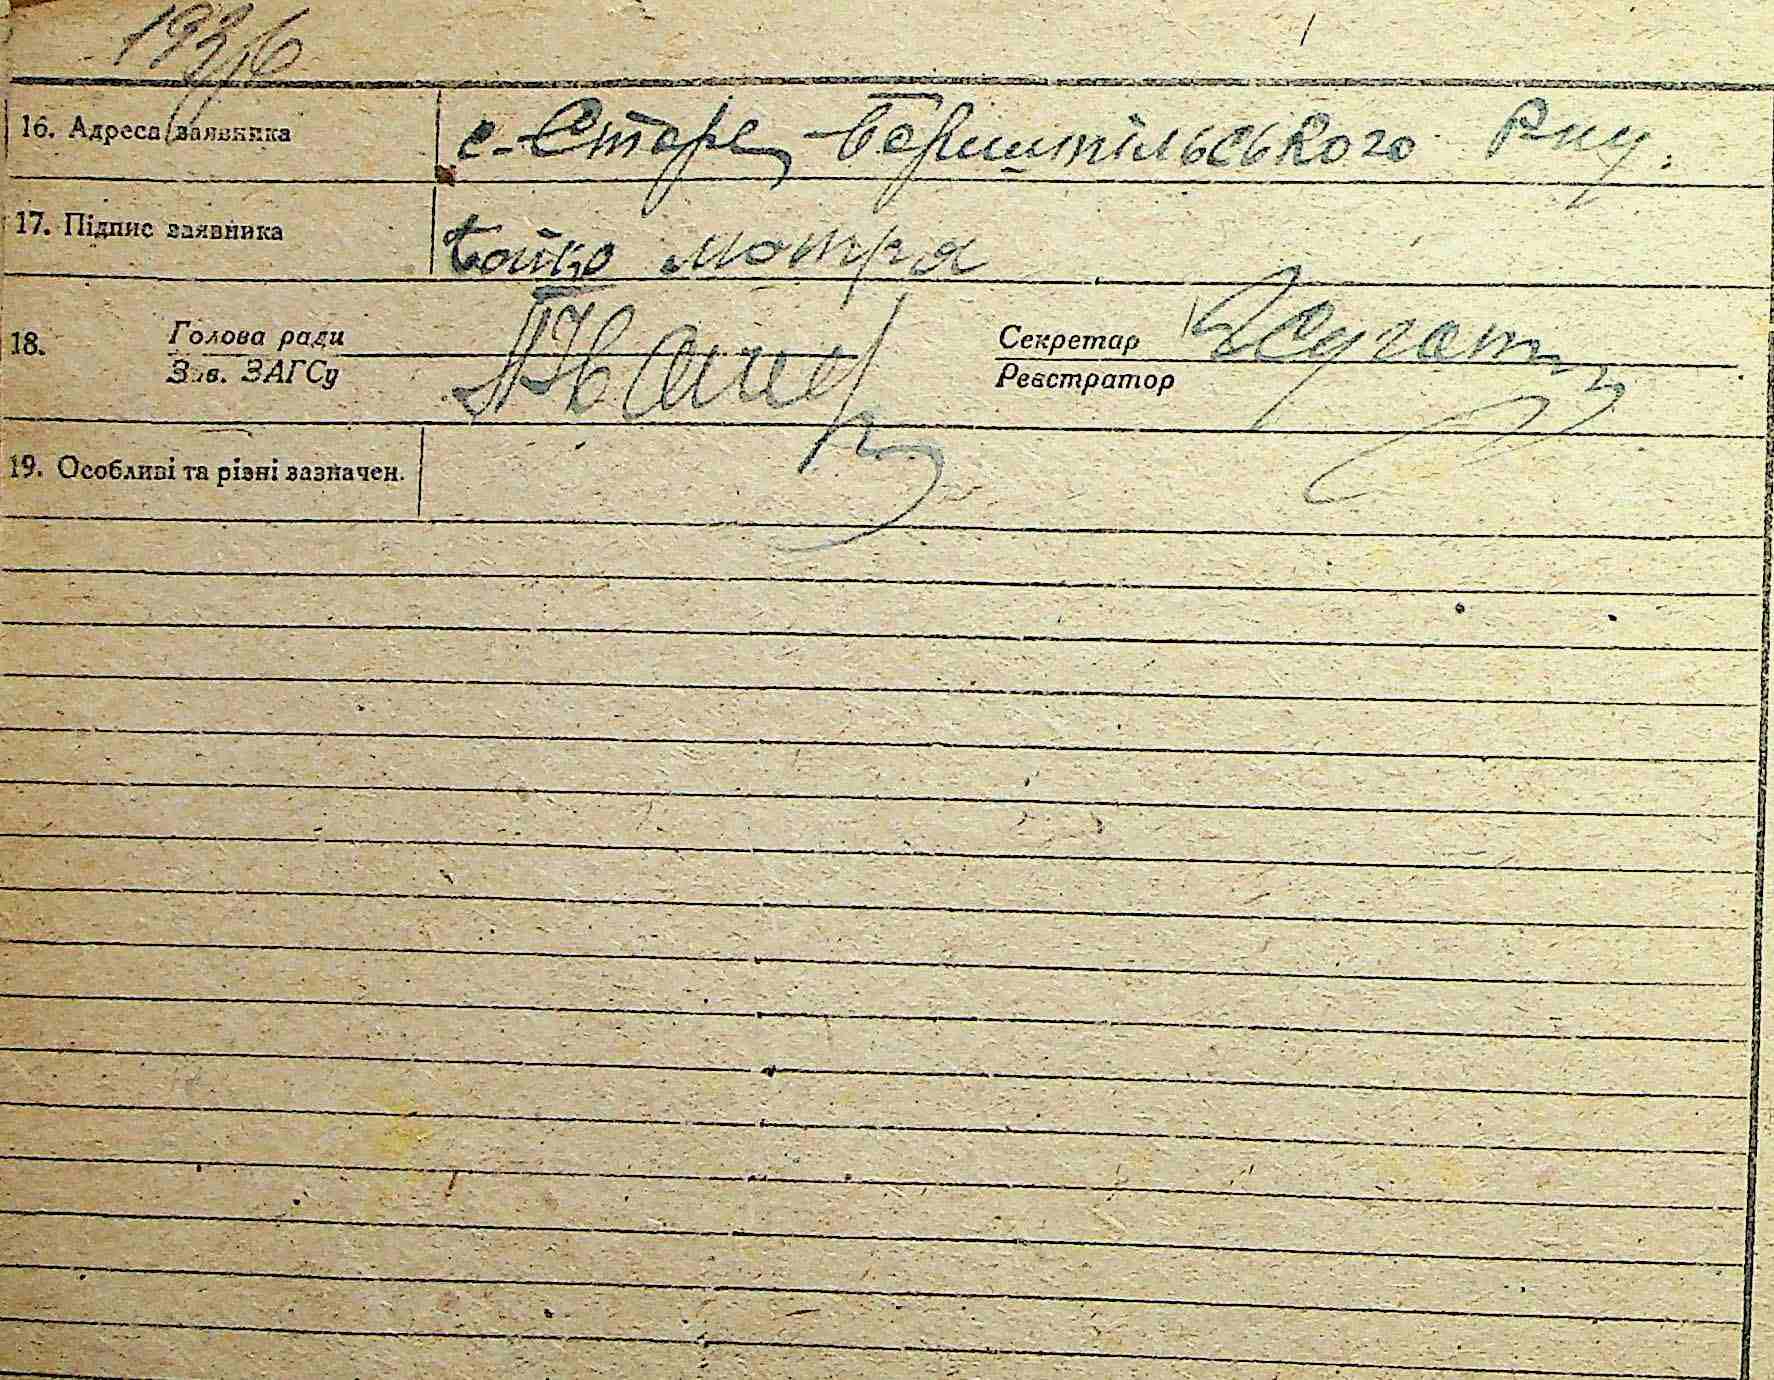 1936
16. Адреса заявника с. Старе, Бориспільського р-ну.
17. Підпис заявника Бойко мотря
18. Голова ради Секретар
Зав. ЗАГСу Реєстратор
19. Особливі та різні зазначен.